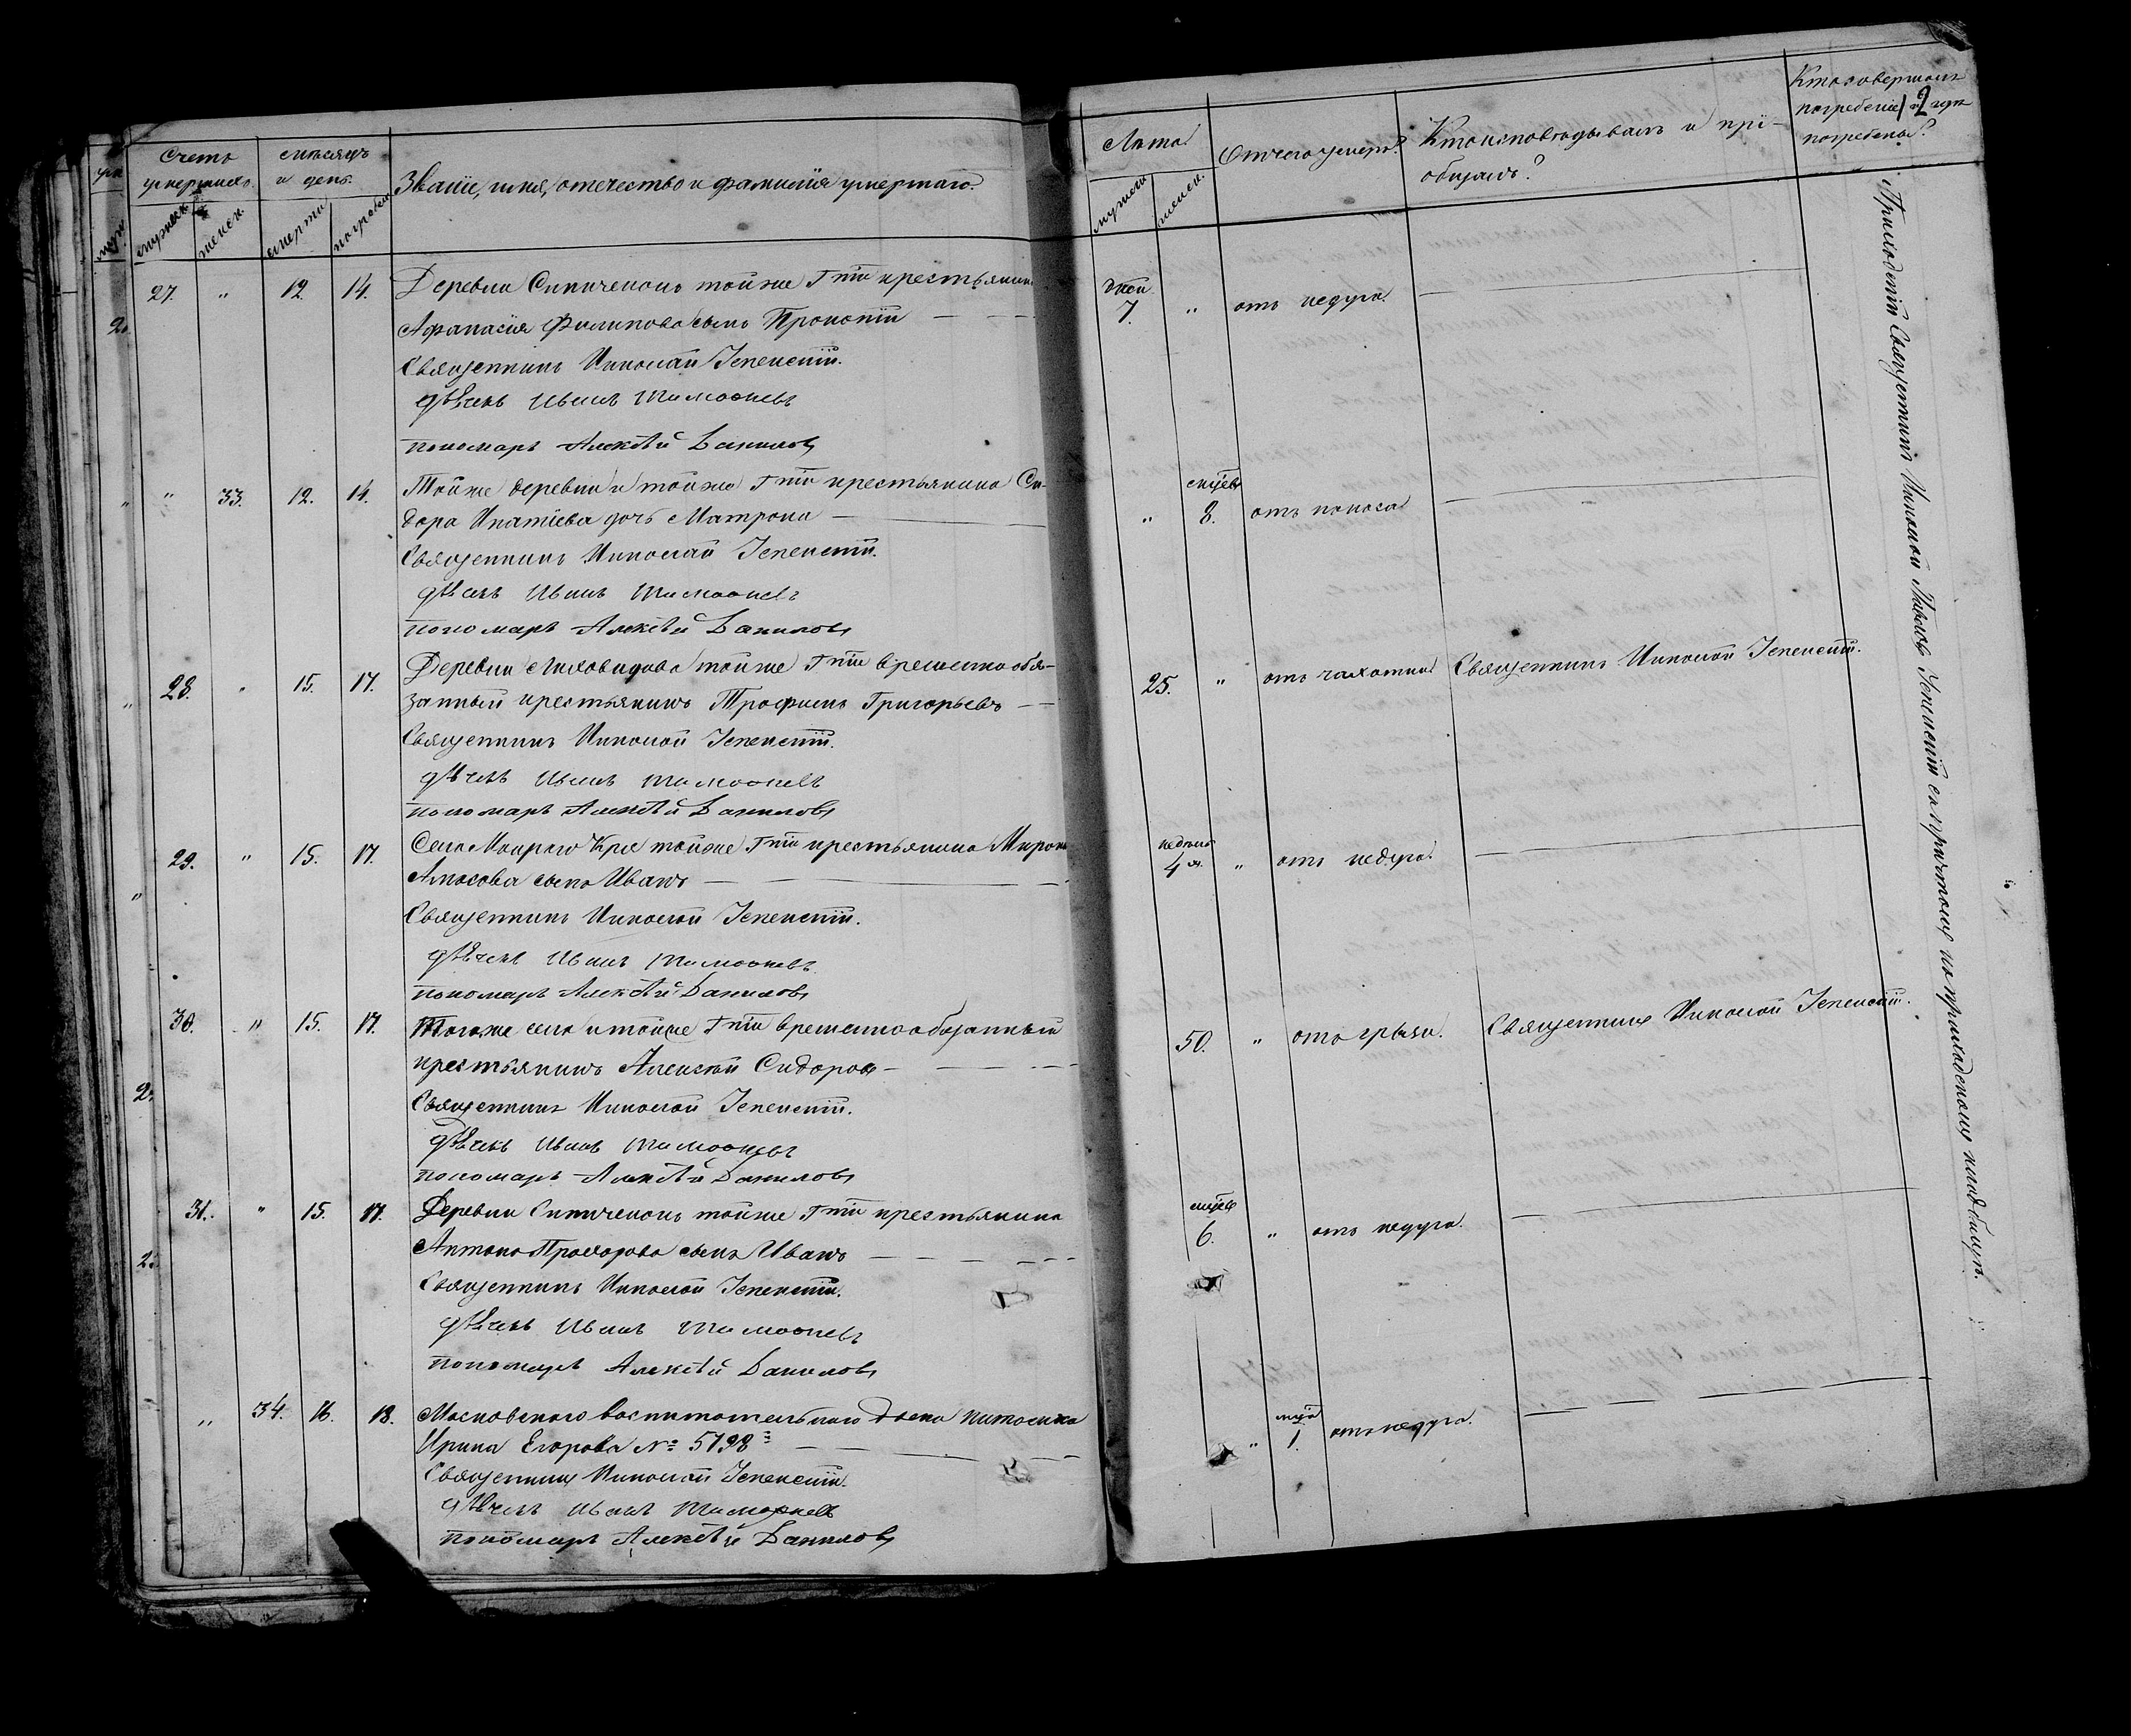 Счетъ умершихъ.
Мѣсяцъ и день.
Званіе, имя, отечество и фамилія умершаго.
Лѣта
Отчего умеръ?
Кто исповѣдывалъ и прі-
общалъ?
Кто совершалъ
погребеніе и гдѣ
погребены?
мужеск. женск. смерти погребен.
мужеск. женск.
27. " 12. 14. Деревни тойже Гжи крестьянина
Афанасія Филипова сынъ Прокопій
дней 7. " отъ недуга.
Священникъ Николай Успенскій.
дьячекъ Иванъ Тимоѳеевъ
пономарь Алексѣй Даниловъ
" 33. 12. 14. Тойже деревни и тойже Гжи крестьянина Си-
дора Ипатіева дочь Матрона
" мцевъ 8. отъ поноса
Священникъ Николай Успенскій.
дьячекъ Иванъ Тимоѳеевъ
пономарь Алексѣй Даниловъ
28. " 15. 17. Деревни тойже Гжи временно обя-
занный крестьянинъ Трофимъ Григорьевъ
25. " отъ чахотки Священникъ Николай Успенскій.
Священникъ Николай Успенскій.
дьячекъ Иванъ Тимоѳеевъ
пономарь Алексѣй Даниловъ
29. " 15. 17. Села тойже Гжи крестьянина Мирона
Амосова сынъ Иванъ
недѣль 4 " отъ недуга.
Священникъ Николай Успенскій.
дьячекъ Иванъ Тимоѳеевъ
пономарь Алексѣй Даниловъ
30. " 15. 17. Тогоже села и тойже Гжи временно обязанный
крестьянинъ Алексѣй Сидоровъ
50. " отъ грыжи. Священникъ Николай Успенскій.
Священникъ Николай Успенскій.
дьячекъ Иванъ Тимоѳеевъ
пономарь Алексѣй Даниловъ
31. " 15. 17. Деревни тойже Гжи крестьянина
Антона Прохорова сынъ Иванъ
мцевъ 6. " отъ недуга.
Священникъ Николай Успенскій.
дьячекъ Иванъ Тимоѳеевъ
пономарь Алексѣй Даниловъ
" 34. 16. 18. Московскаго воспитательнаго дома питомка
Ирина Егорова № 5198
" мцъ 1. отъ недуга.
Священникъ Николай Успенскій.
дьячекъ Иванъ Тимоѳеевъ
пономарь Алексѣй Даниловъ
Приходскій Священникъ Николай Павловъ Успенскій съ причтомъ на приходскомъ кладбищѣ.